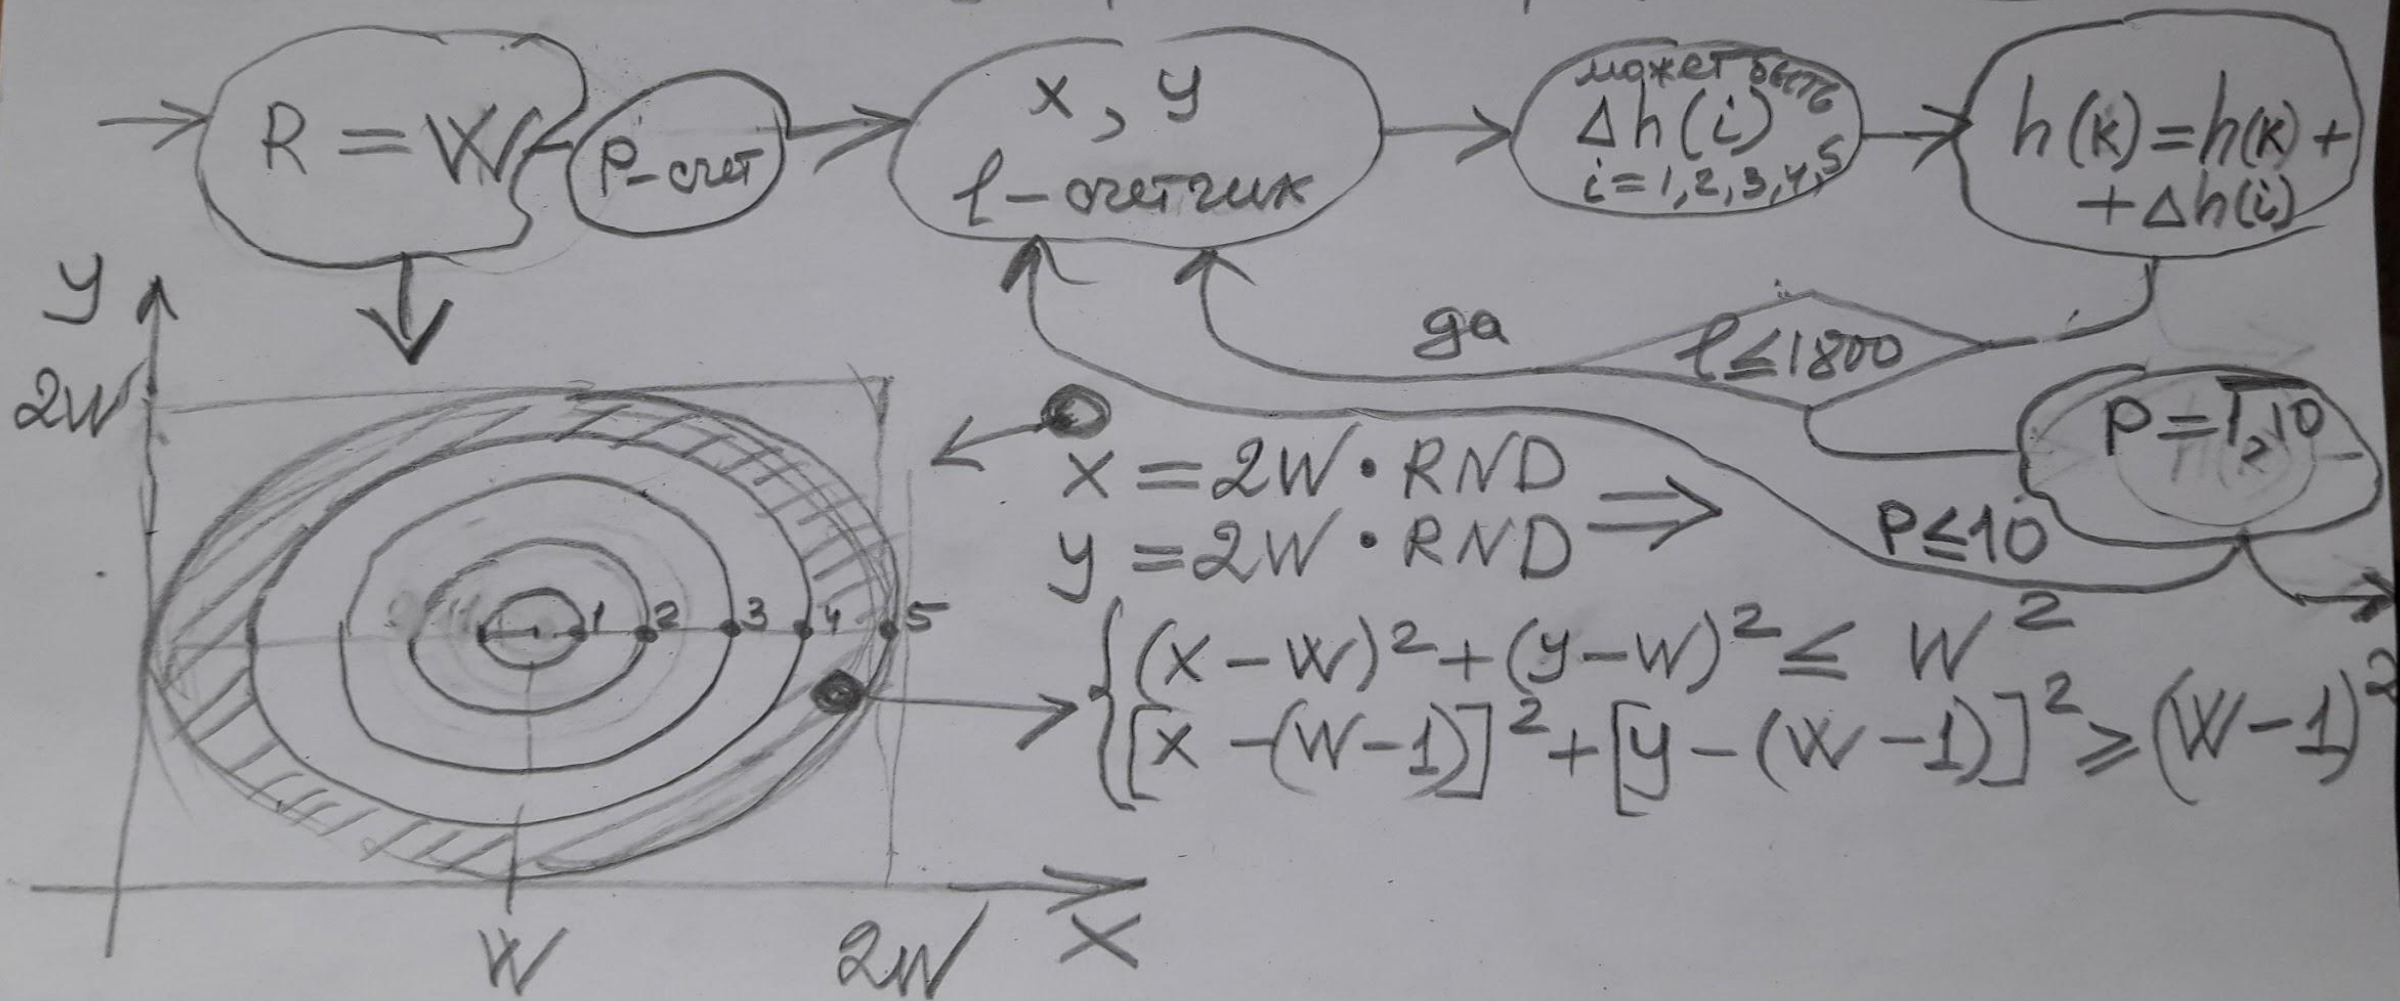 R = W
p-счет
x, y
l-счетчик
может быть
Δh(i)
i=1,2,3,4,5
h(k)=h(k)+
+Δh(i)
да
l≤1800
p=1,10
p≤10
y
2W
x=2W•RND
y=2W•RND
1 2 3 4 5
(x-W)²+(y-W)²≤ W²
[x-(W-1)]²+[y-(W-1)]²≥(W-1)²
W
2W
X